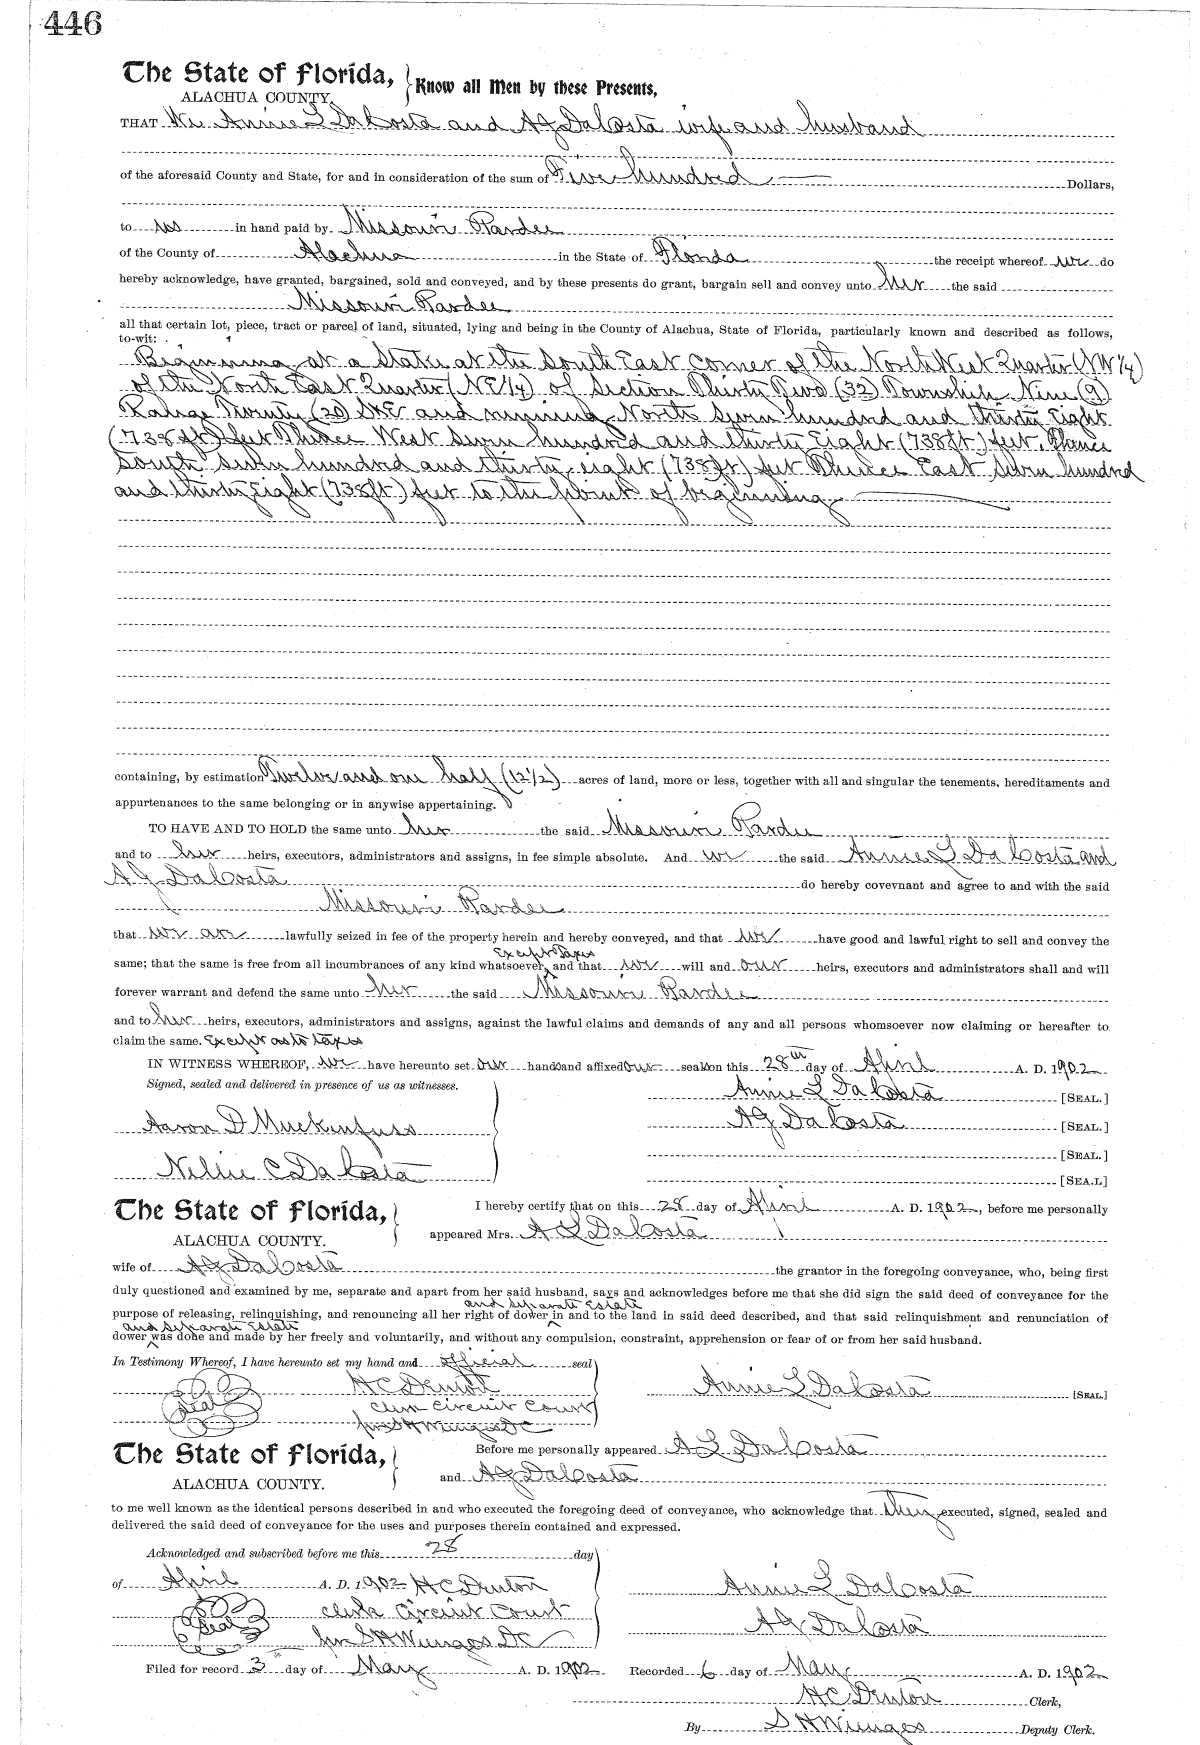 446
The State of Florida, Know all Men by these Presents,
ALACHUA COUNTY.
THAT We Annie L DaCosta and AJ DaCosta wife and husband
of the aforesaid County and State, for and in consideration of the sum of Five hundred Dollars,
to us in hand paid by Missouri Pardee
of the County of Alachua in the State of Florida the receipt whereof we do
hereby acknowledge, have granted, bargained, sold and conveyed, and by these presents do grant, bargain sell and convey unto her the said
Missouri Pardee
all that certain lot, piece, tract or parcel of land, situated, lying and being in the County of Alachua, State of Florida, particularly known and described as follows,
to-wit:
Beginning at a Stake at the South East corner of the North West Quarter (NW 1/4)
of the North East Quarter (NE 1/4) of Section Thirty Two (32) Township Nine (9)
Range Twenty (20) S&E and running North Seven hundred and thirty Eight
(738 ft) feet Thence West Seven hundred and thirty Eight (738 ft) feet, Thence
South Seven hundred and thirty eight (738 ft) feet Thence East Seven hundred
and thirty Eight (738 ft) feet to the point of beginning
containing, by estimation Twelve and one half (12 1/2) acres of land, more or less, together with all and singular the tenements, hereditaments and
appurtenances to the same belonging or in anywise appertaining.
TO HAVE AND TO HOLD the same unto her the said Missouri Pardee
and to her heirs, executors, administrators and assigns, in fee simple absolute. And we the said Annie L DaCosta and
AJ DaCosta do hereby covevnant and agree to and with the said
Missouri Pardee
that we are lawfully seized in fee of the property herein and hereby conveyed, and that we have good and lawful right to sell and convey the
Except Taxes
same; that the same is free from all incumbrances of any kind whatsoever, and that we will and our heirs, executors and administrators shall and will
forever warrant and defend the same unto her the said Missouri Pardee
and to her heirs, executors, administrators and assigns, against the lawful claims and demands of any and all persons whomsoever now claiming or hereafter to
claim the same. Except as to taxes
IN WITNESS WHEREOF, we have hereunto set our hands and affixed our seals on this 28th day of April A. D. 1902
Signed, sealed and delivered in presence of us as witnesses.
Annie L DaCosta [SEAL.]
Aaron D Muckenfuss AJ DaCosta [SEAL.]
[SEAL.]
Nellie C DaCosta [SEA.L]
The State of Florida, I hereby certify that on this 28 day of April A. D. 1902, before me personally
ALACHUA COUNTY. appeared Mrs. A L DaCosta
wife of AJ DaCosta the grantor in the foregoing conveyance, who, being first
duly questioned and examined by me, separate and apart from her said husband, says and acknowledges before me that she did sign the said deed of conveyance for the
and separate Estate
purpose of releasing, relinquishing, and renouncing all her right of dower in and to the land in said deed described, and that said relinquishment and renunciation of
and separate Estate
dower was done and made by her freely and voluntarily, and without any compulsion, constraint, apprehension or fear of or from her said husband.
In Testimony Whereof, I have hereunto set my hand and official seal
Seal HC Denton Annie L DaCosta [SEAL.]
Clerk Circuit Court
per S H Wienges DC
The State of Florida, Before me personally appeared A L DaCosta
ALACHUA COUNTY. and AJ DaCosta
to me well known as the identical persons described in and who executed the foregoing deed of conveyance, who acknowledge that they executed, signed, sealed and
delivered the said deed of conveyance for the uses and purposes therein contained and expressed.
Acknowledged and subscribed before me this 28 day
of April A. D. 1902 HC Denton Annie L DaCosta
Seal Clerk Circuit Court AJ DaCosta
per S H Wienges DC
Filed for record 3 day of May A. D. 1902 Recorded 6 day of May A. D. 1902
HC Denton Clerk,
By S H Wienges Deputy Clerk.